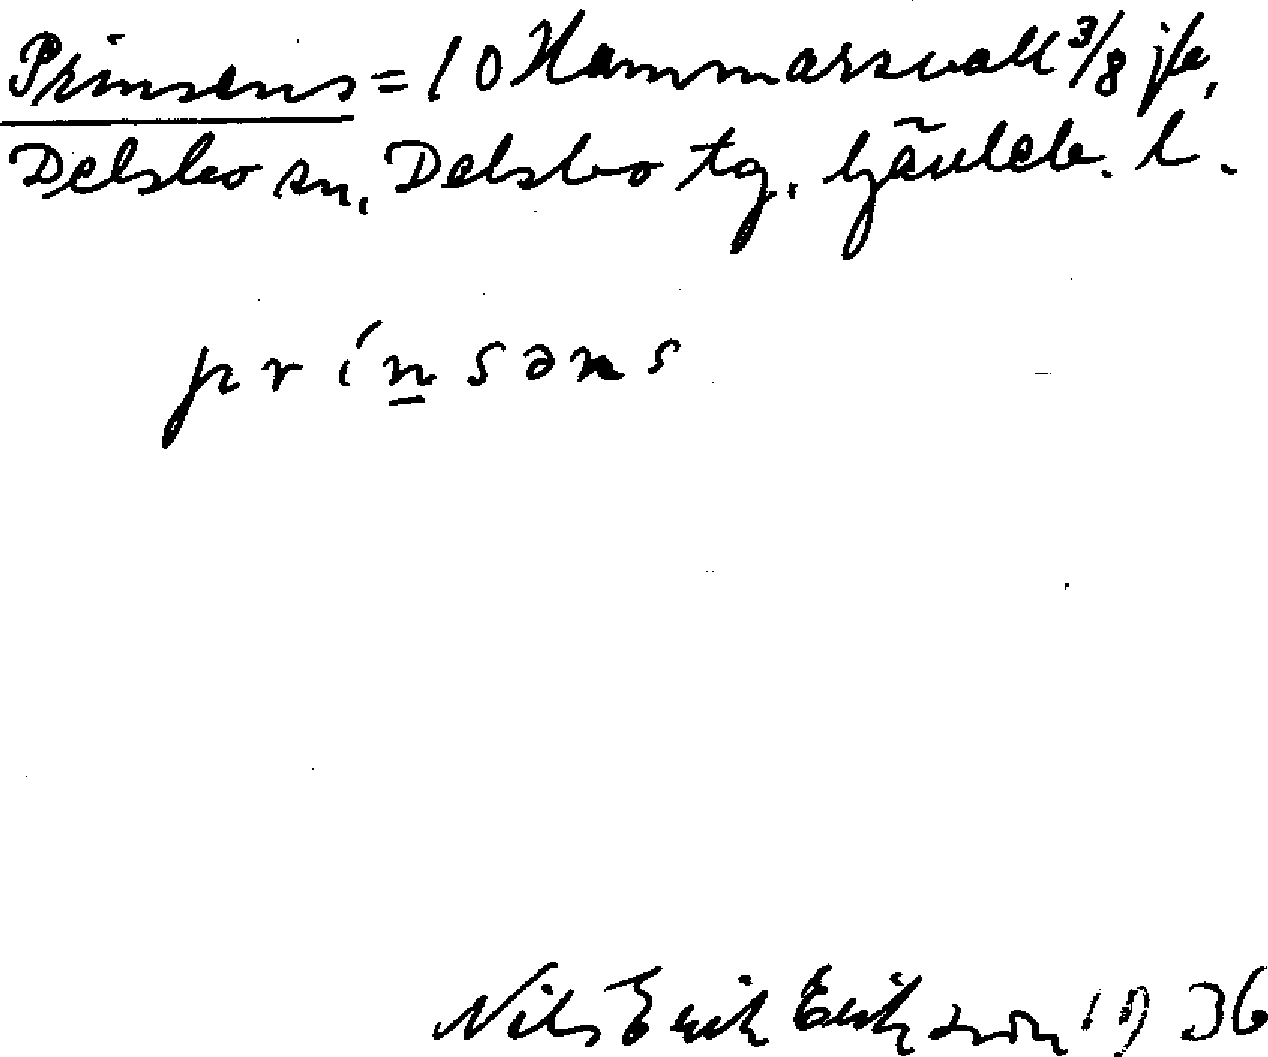 Prinsens = 10 Hammarsvall 3/8 jb,
Delsbo sn, Delsbo tg. Gävleb. l.
prínsəns
Nils Erik Eriksson 1936